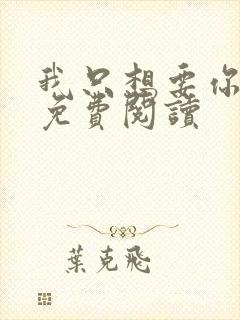 我只想要你
免費閱讀
葉克飛